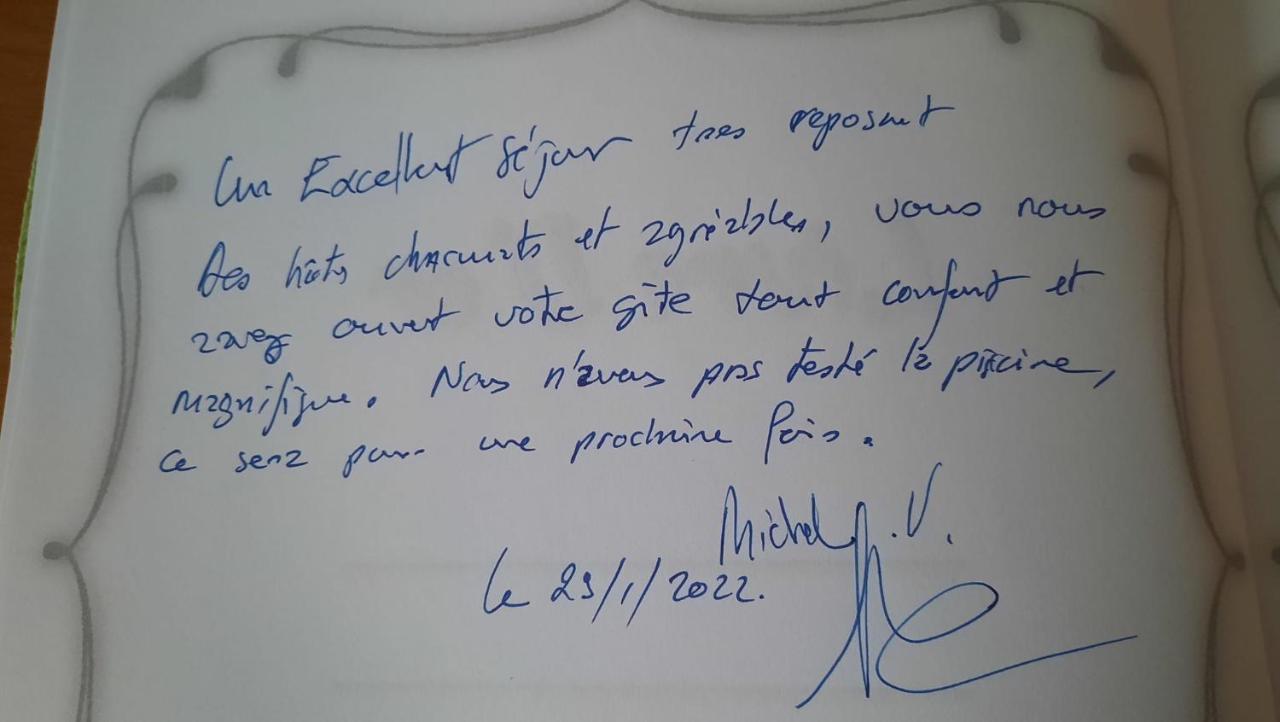 Un Excellent séjour tres reposant
Des hôts charmants et agréables, vous nous
avez ouvert votre gîte tout confort et
magnifique. Nous n'avons pas testé la piscine,
ce sera pour une prochaine fois.
Michel .V.
le 29/1/2022.